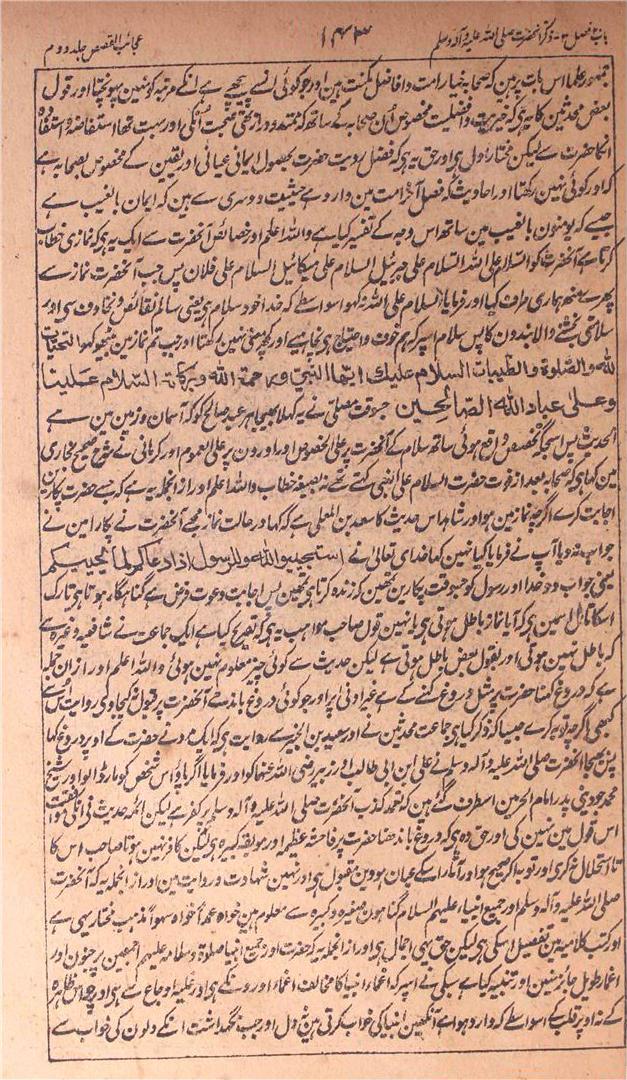 باب ۴ فصل ۳ ذکر آنحضرت صلی اللہ علیہ وآلہ وسلم ۱۴۳ عجائب القصص جلد دوم
جمہور علما اس بات پر ہین کہ صحابہ خیار امت و افاضل ملت ہین اور جو کوئی انسے پیچھے ہے انکے مرتبہ کو نہین پہونچتا اور قول
بعض محدثین کا یہ ہی کہ خیریت و افضلیت مخصوص اُن صحابہ کے ساتھ کہ صحبت اُنکی اور بہت تھا استفاضہ و استفادہ
انکا حضرت سے لیکن مختار اول ہی اور حق یہ ہی کہ فضل رویت حضرت بحصول ایمانی عیانی اور یقین کے مخصوص بصحابہ ہے
کہ اور کوئی نہین رکھتا اور احادیث کہ فضل آخر امت مین وارد ہے حیثیت دوسری سے ہین کہ ایمان بالغیب ہے
جیسے کہ یومنون بالغیب مین ساتھ اس وجہ کے تفسیر کیا ہے واللہ اعلم اور خصائص آنحضرت سے ایک یہ ہی کہ نمازی خطاب
کرتا ہے آنحضرت کو السلام علی اللہ السلام علی جبرئیل السلام علی میکائیل السلام علی فلان پس جب آنحضرت نماز سے
پھرے منھ ہماری طرف کیا اور فرمایا السلام علی اللہ نہ کہو اسواسطے کہ خدا خود سلام ہی یعنی سالم نقائص و مخاوف سے اور
سلامتی بخشنے والا بندون کا پس سلام اسپر کہ ہم خوف و احتیاج ہی نچاہیے اور کچھ معنی نہین رکھتا اور جب تم نماز مین بیٹھو کہو التحیات
للہ والصلوۃ والطیبات السلام علیک ایہا النبی ورحمۃ اللہ وبرکاتہ السلام علینا
وعلی عباد اللہ الصالحین جسوقت مصلی نے یہ کہا بھیجا ہر عبد صالح کو کہ آسمان و زمین مین ہے
الحدیث پس اسجگہ تخصیص واقع ہوئی ساتھ سلام کے آنحضرت پر علی الخصوص اور اورون پر علی العموم اور کرمانی نے شرح صحیح بخاری
مین کہا ہی کہ صحابہ بعد از فوت حضرت السلام علی النبی کہتے تھے نہ بصیغہ خطاب واللہ اعلم اور از انجملہ یہ ہے کہ جسے حضرت پکارین
اجابت کرے اگرچہ نماز مین ہو اور شاہد اس حدیث کا سعد بن المعلی ہے کہ کہا درحالت نماز مجھے آنحضرت نے پکارا مین نے
جواب ندیا آپ نے فرمایا کیا نہین کہا خدای تعالی نے استجیبوا للہ وللرسول اذا دعاکم لما یحییکم
یعنی جواب دو خدا اور رسول کو جسوقت پکارین تمھین کہ زندہ کرتا ہی تمھین پس اجابت دعوت فرض ہے گناہگار ہوتا ہی تارک
اسکا تامل اسمین ہی کہ آیا نماز باطل ہوتی ہی یا نہین قول صاحب مواہب یہ ہی کہ تصریح کیا ہے ایک جماعت نے شافعیہ وغیرہ سے
کہ باطل نہین ہوتی اور بقول بعض باطل ہوتی ہے لیکن حدیث سے کوئی چیز معلوم نہین ہوئی واللہ اعلم اور از انجملہ
ہے کہ دروغ کہنا حضرت پر مثل دروغ کہنے کے ہے غیر اونپر اور جو کوئی دروغ باندھے آنحضرت پر قبول نکیجاوے روایت اُسکی
کبھی اگرچہ توبہ کرے جیسا کہ ذکر کیا ہی جماعت محدثین نے اور سعید بن الجبیر سے روایت ہی کہ ایک مرد نے حضرت کے اوپر دروغ کہا
پس بھیجا آنحضرت صلی اللہ علیہ وآلہ وسلم نے علی ابن ابی طالب اور زبیر رضی اللہ عنہما کو اور فرمایا اگر پاؤ اُس شخص کو مار ڈالو اور شیخ
محمد جوینی پدر امام الحرمین اسطرف گئے ہین کہ تعمد کذب آنحضرت صلی اللہ علیہ وآلہ وسلم پر کفر ہے لیکن ائمہ حدیث نے انکی موافقت
اس قول مین نہین کی اور حق وہ ہی کہ دروغ باندھنا حضرت پر فاحشہ عظیمہ اور موبقہ کبیرہ ہی لیکن کافر نہین ہوتا صاحب اس کا
تا استحلال نکرے اور توبہ اگر صحیح ہو اور آثار اُسکے عیان ہووین قبول ہی اور نہین شہادت و روایت مین اور از انجملہ یہ کہ آنحضرت
صلی اللہ علیہ وآلہ وسلم اور جمیع انبیاء علیہم السلام گناہون صغیرہ و کبیرہ سے معصوم ہین خواہ عمداً خواہ سہواً مذہب مختار یہی ہے
اور کتب کلامیہ مین تفصیل اسکی ہی لیکن حق یہی اجمال ہی اور از انجملہ یہ کہ حضرت اور جمیع انبیا صلوۃ وسلامہ علیہم اجمعین پر جنون اور
اغماء طویل جائز نہین اور تنبیہ کیا ہے سبکی نے اسپر کہ اغماء انبیا کا مخالف اغماء اورونکے ہی اور غلبہ اوجاع سے ہی اوپر حواس ظاہرہ
کے نہ اوپر قلب کے اسواسطے کہ وارد ہوا ہے آنکھین انبیا کی خواب کرتی ہین نہ دل اور جب نگہداشت انکے دلون کی خواب سے